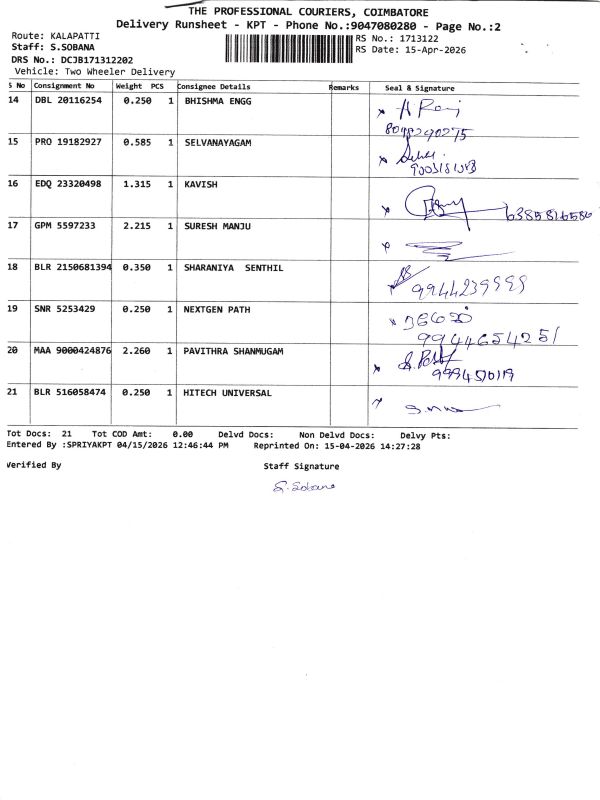 THE PROFESSIONAL COURIERS, COIMBATORE
Delivery Runsheet - KPT - Phone No.:9047080280 - Page No.:2
Route: KALAPATTI
RS No.: 1713122
Staff: S.SOBANA
RS Date: 15-Apr-2026
DRS No.: DCJB171312202
Vehicle: Two Wheeler Delivery
S No Consignment No Weight PCS Consignee Details Remarks Seal & Signature
14 DBL 20116254 0.250 1 BHISHMA ENGG
15 PRO 19182927 0.585 1 SELVANAYAGAM
16 EDQ 23320498 1.315 1 KAVISH
6385816586
17 GPM 5597233 2.215 1 SURESH MANJU
18 BLR 2150681394 0.350 1 SHARANIYA SENTHIL
9944239999
19 SNR 5253429 0.250 1 NEXTGEN PATH
20 MAA 9000424876 2.260 1 PAVITHRA SHANMUGAM
21 BLR 516058474 0.250 1 HITECH UNIVERSAL
Tot Docs: 21 Tot COD Amt: 0.00 Delvd Docs: Non Delvd Docs: Delvy Pts:
Entered By :SPRIYAKPT 04/15/2026 12:46:44 PM Reprinted On: 15-04-2026 14:27:28
Verified By Staff Signature
S. Sobana